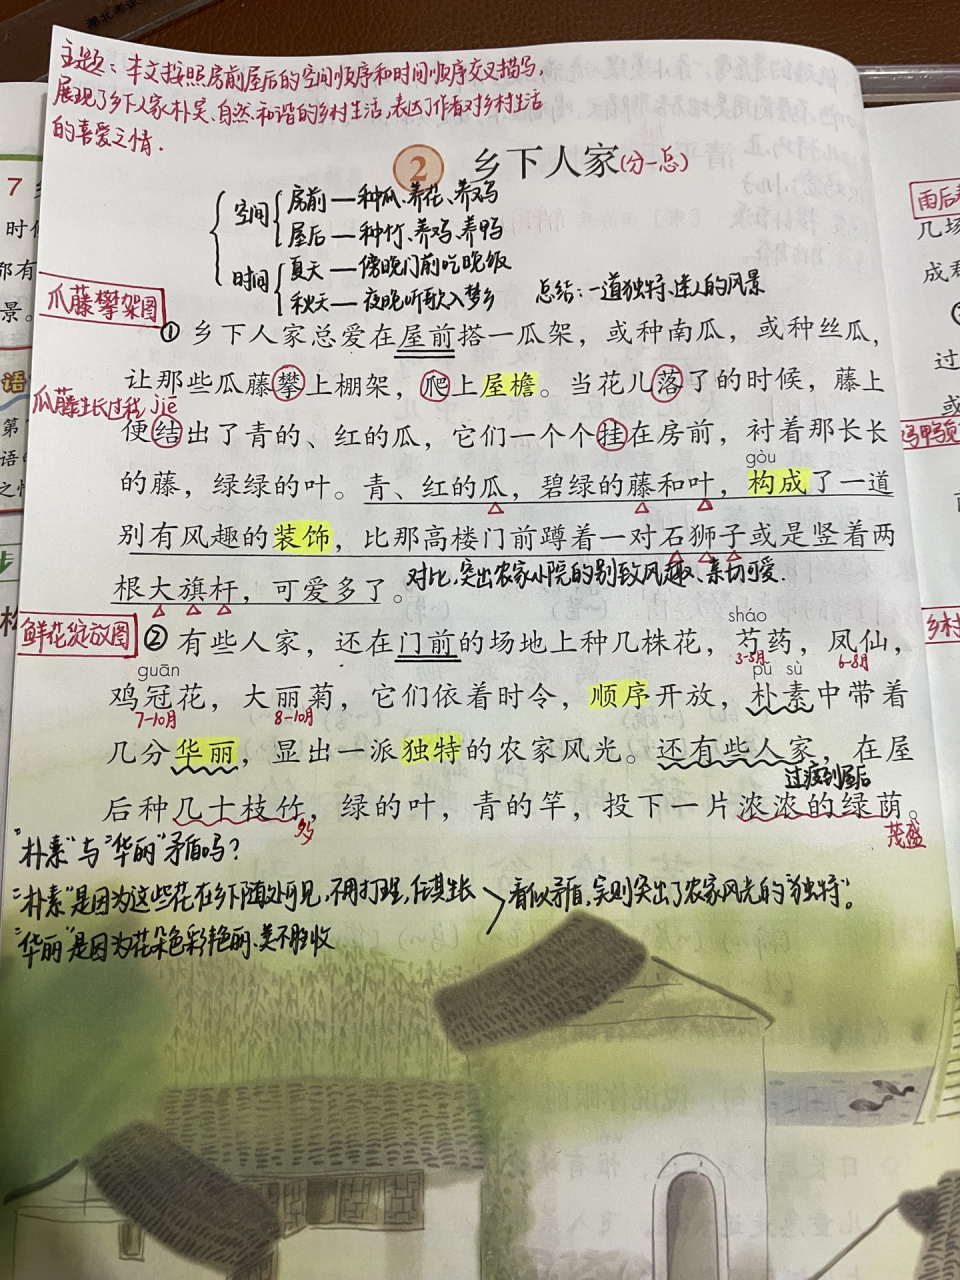 主题：本文按照房前屋后的空间顺序和时间顺序交叉描写，
展现了乡下人家朴实、自然、和谐的乡村生活，表达了作者对乡村生活
的喜爱之情．
2 乡下人家(分-总)
空间 房前—种瓜、养花、养鸡
屋后—种竹、养鸡、养鸭
时间 夏天—傍晚门前吃晚饭
秋天—夜晚听歌入梦乡
总结：一道独特、迷人的风景
瓜藤攀架图
① 乡下人家总爱在屋前搭一瓜架，或种南瓜，或种丝瓜，
让那些瓜藤攀上棚架，爬上屋檐。当花儿落了的时候，藤上
瓜藤生长过程 jiē
便结出了青的、红的瓜，它们一个个挂在房前，衬着那长长
gòu
的藤，绿绿的叶。青、红的瓜，碧绿的藤和叶，构成了一道
别有风趣的装饰，比那高楼门前蹲着一对石狮子或是竖着两
根大旗杆，可爱多了。
对比，突出农家小院的别致风趣、亲切可爱．
鲜花绽放图
sháo
② 有些人家，还在门前的场地上种几株花，芍药，凤仙，
3-5月 6-8月
guān pǔ sù
鸡冠花，大丽菊，它们依着时令，顺序开放，朴素中带着
7-10月 8-10月
几分华丽，显出一派独特的农家风光。还有些人家，在屋
过渡到屋后
后种几十枝竹，绿的叶，青的竿，投下一片浓浓的绿荫。
多 茂盛
"朴素"与"华丽"矛盾吗？
"朴素"是因为这些花在乡下随处可见，不用打理，任其生长
看似矛盾，实则突出了农家风光的"独特"。
"华丽"是因为花朵色彩艳丽、美不胜收
7
时
都有
景。
语
第
语
之
步
雨后
几场
成君
过
或
鸡鸭
乡村